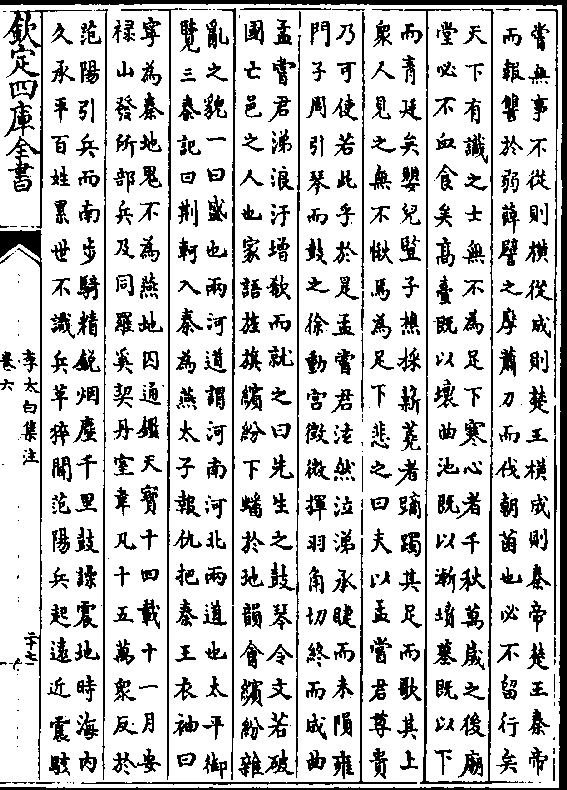 嘗無事不從則橫從成則楚王橫成則秦帝楚王秦帝
而報讐於弱薛譬之摩蕭刀而伐朝菌也必不留行矣
天下有識之士無不為足下寒心者千秋萬歲之後廟
堂必不血食矣高臺既以壞曲池既以漸墳墓既以下
而青廷矣嬰兒豎子樵採薪蕘者躑躅其足而歌其上
衆人見之無不愀焉為足下悲之曰夫以孟嘗君尊貴
乃可使若此乎於是孟嘗君泫然泣涕承睫而未隕雍
門子周引琴而鼓之徐動宮徵微揮羽角切終而成曲
孟嘗君涕浪汙增欷而就之曰先生之鼓琴令文若破
國亡邑之人也家語旌旗繽紛下蟠於地韻會繽紛雜
亂之貌一曰盛也兩河道謂河南河北兩道也太平御
覽三秦記曰荆軻入秦為燕太子報仇把秦王衣袖曰
寧為秦地鬼不為燕地囚通鑑天寶十四載十一月安
祿山發所部兵及同羅奚契丹室韋凡十五萬衆反於
范陽引兵而南步騎精銳烟塵千里鼓譟震地時海内
久承平百姓累世不識兵革猝聞范陽兵起遠近震駭
欽定四庫全書
李太白集注
卷六
二十七